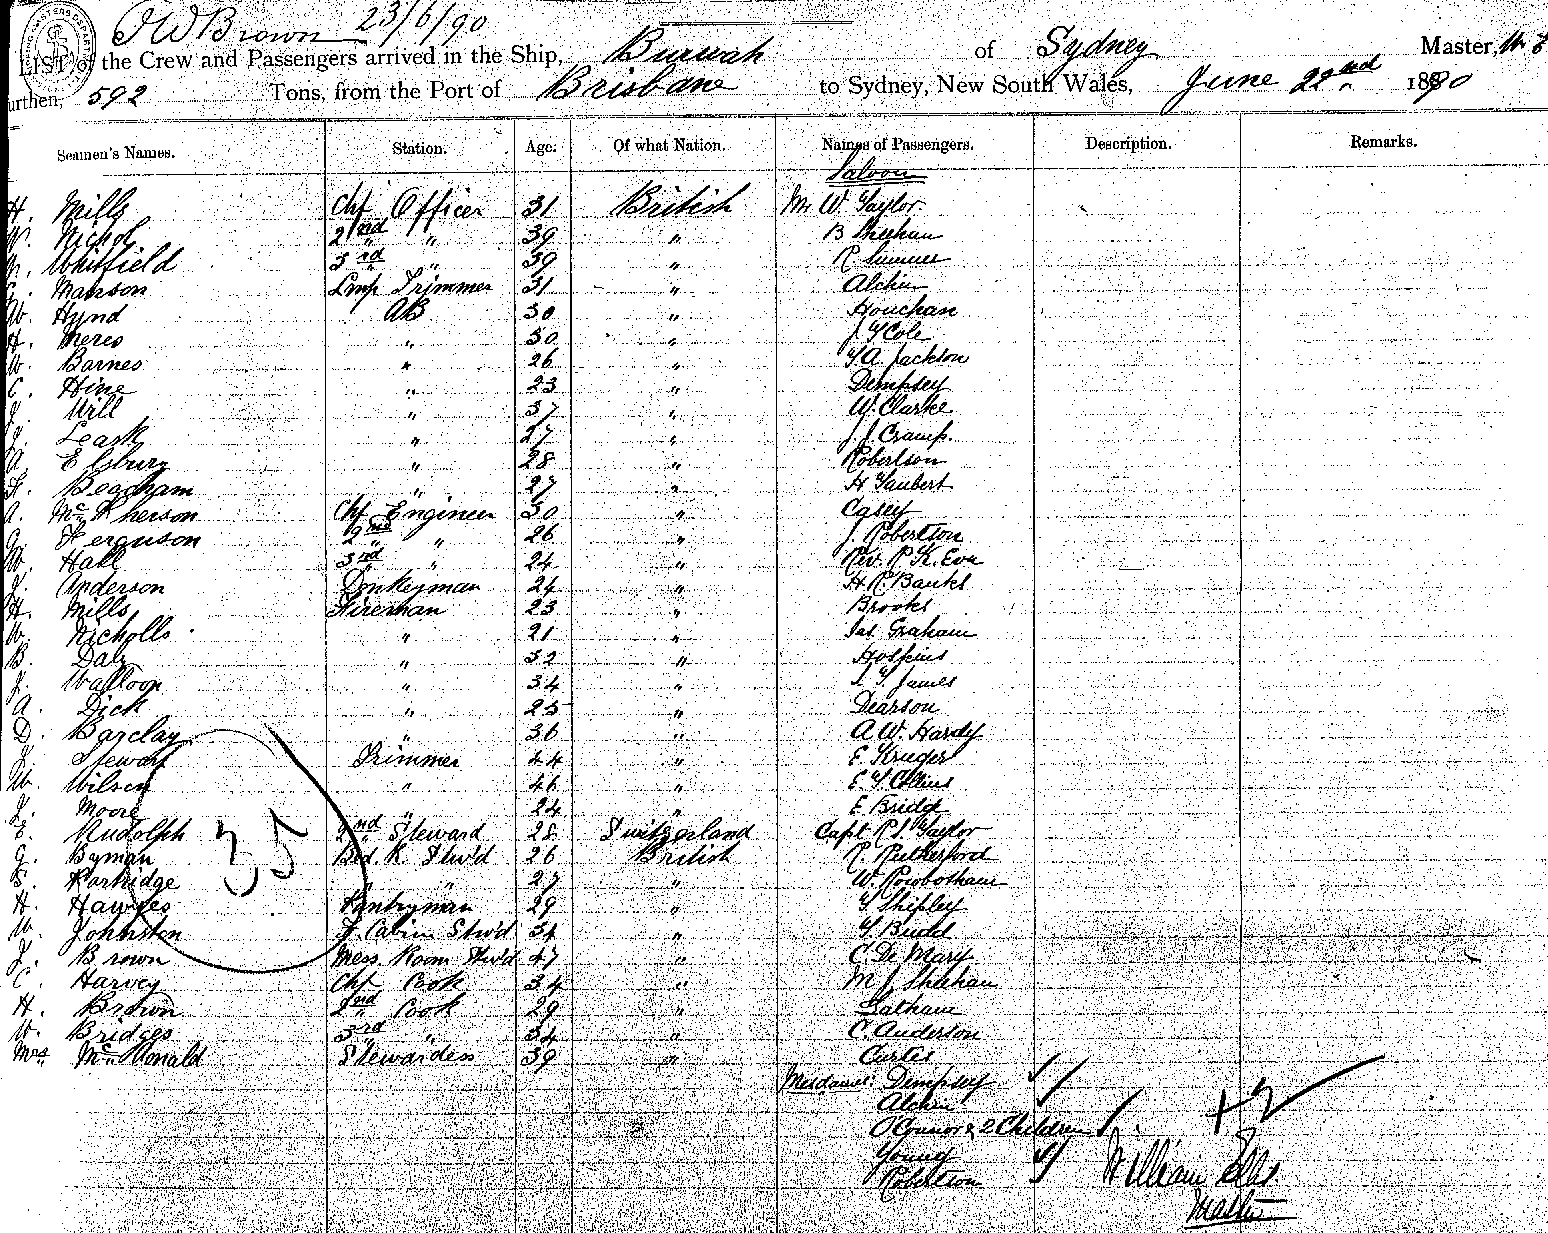 JW Brown 23/6/90
LIST of the Crew and Passengers arrived in the Ship, Burwah of Sydney Master, Wm E
urthen, 592 Tons, from the Port of Brisbane to Sydney, New South Wales, June 22nd 1890
Seamen's Names. Station. Age. Of what Nation. Names of Passengers. Description. Remarks.
Saloon
H. Mills Chf Officer 31 British Mr W Taylor
W. Nichol 2nd " 39 " B Sheehan
Whitfield 3rd " 39 "
Manson Lmp Trimmer 31 " Alchin
W. Hynd AB 30 " Houchan
H. Meres " 30 " J. Y Cole
W. Barnes " 26 " Y A. Jackson
C. Hine " 23 " Dempsey
J. Will " 37 " W. Clarke
J. Leask " 27 " J. J Cramp.
A. Elsbury " 28 " Robertson
F. Beacham " 27 " H Taubert
A. McPherson Chf Engineer 30 " Casey
Ferguson 2nd " 26 " J. Robertson
W. Hall 3rd " 24 " Rev. P. K. Eva
J. Anderson Donkeyman 24 " H R. Banks
H. Mills Fireman 23 " Brooks
W. Nicholls " 21 " Jas Graham
B. Daly " 32 " Hoskins
J. " 34 " James
A. Dick " 25 " Dearson
D. Barclay " 36 " A W. Hardy
J. Stewart Trimmer 44 " E. Kruger
W. Wilson " 46 " E.
J. Moore " 24 " E. Bridge
E. Rudolph 2nd Steward 28 Switzerland Capt R. Taylor
G. Byman Bed R. Stw'd 26 British R. Rutherford
Partridge " " 27 " W. Rowbotham
H. Hawkes Pantryman 29 " Y Shipley
W. Johnston F. Cabin Stw'd 34 "
J. Brown Mess. Room Stw'd 47 " C. De Mary
C. Harvey Chf Cook 34 " M J. Sheehan
H. Brown 2nd Cook 29 " Latham
W. Bridges 3rd " 34 " C. Anderson
Mrs McDonald Stewardess 39 " Curtis
35
Mesdames Dempsey
Alchin
O'Connor & 2 Children
Young
Robertson
+2
William Ellis
Master